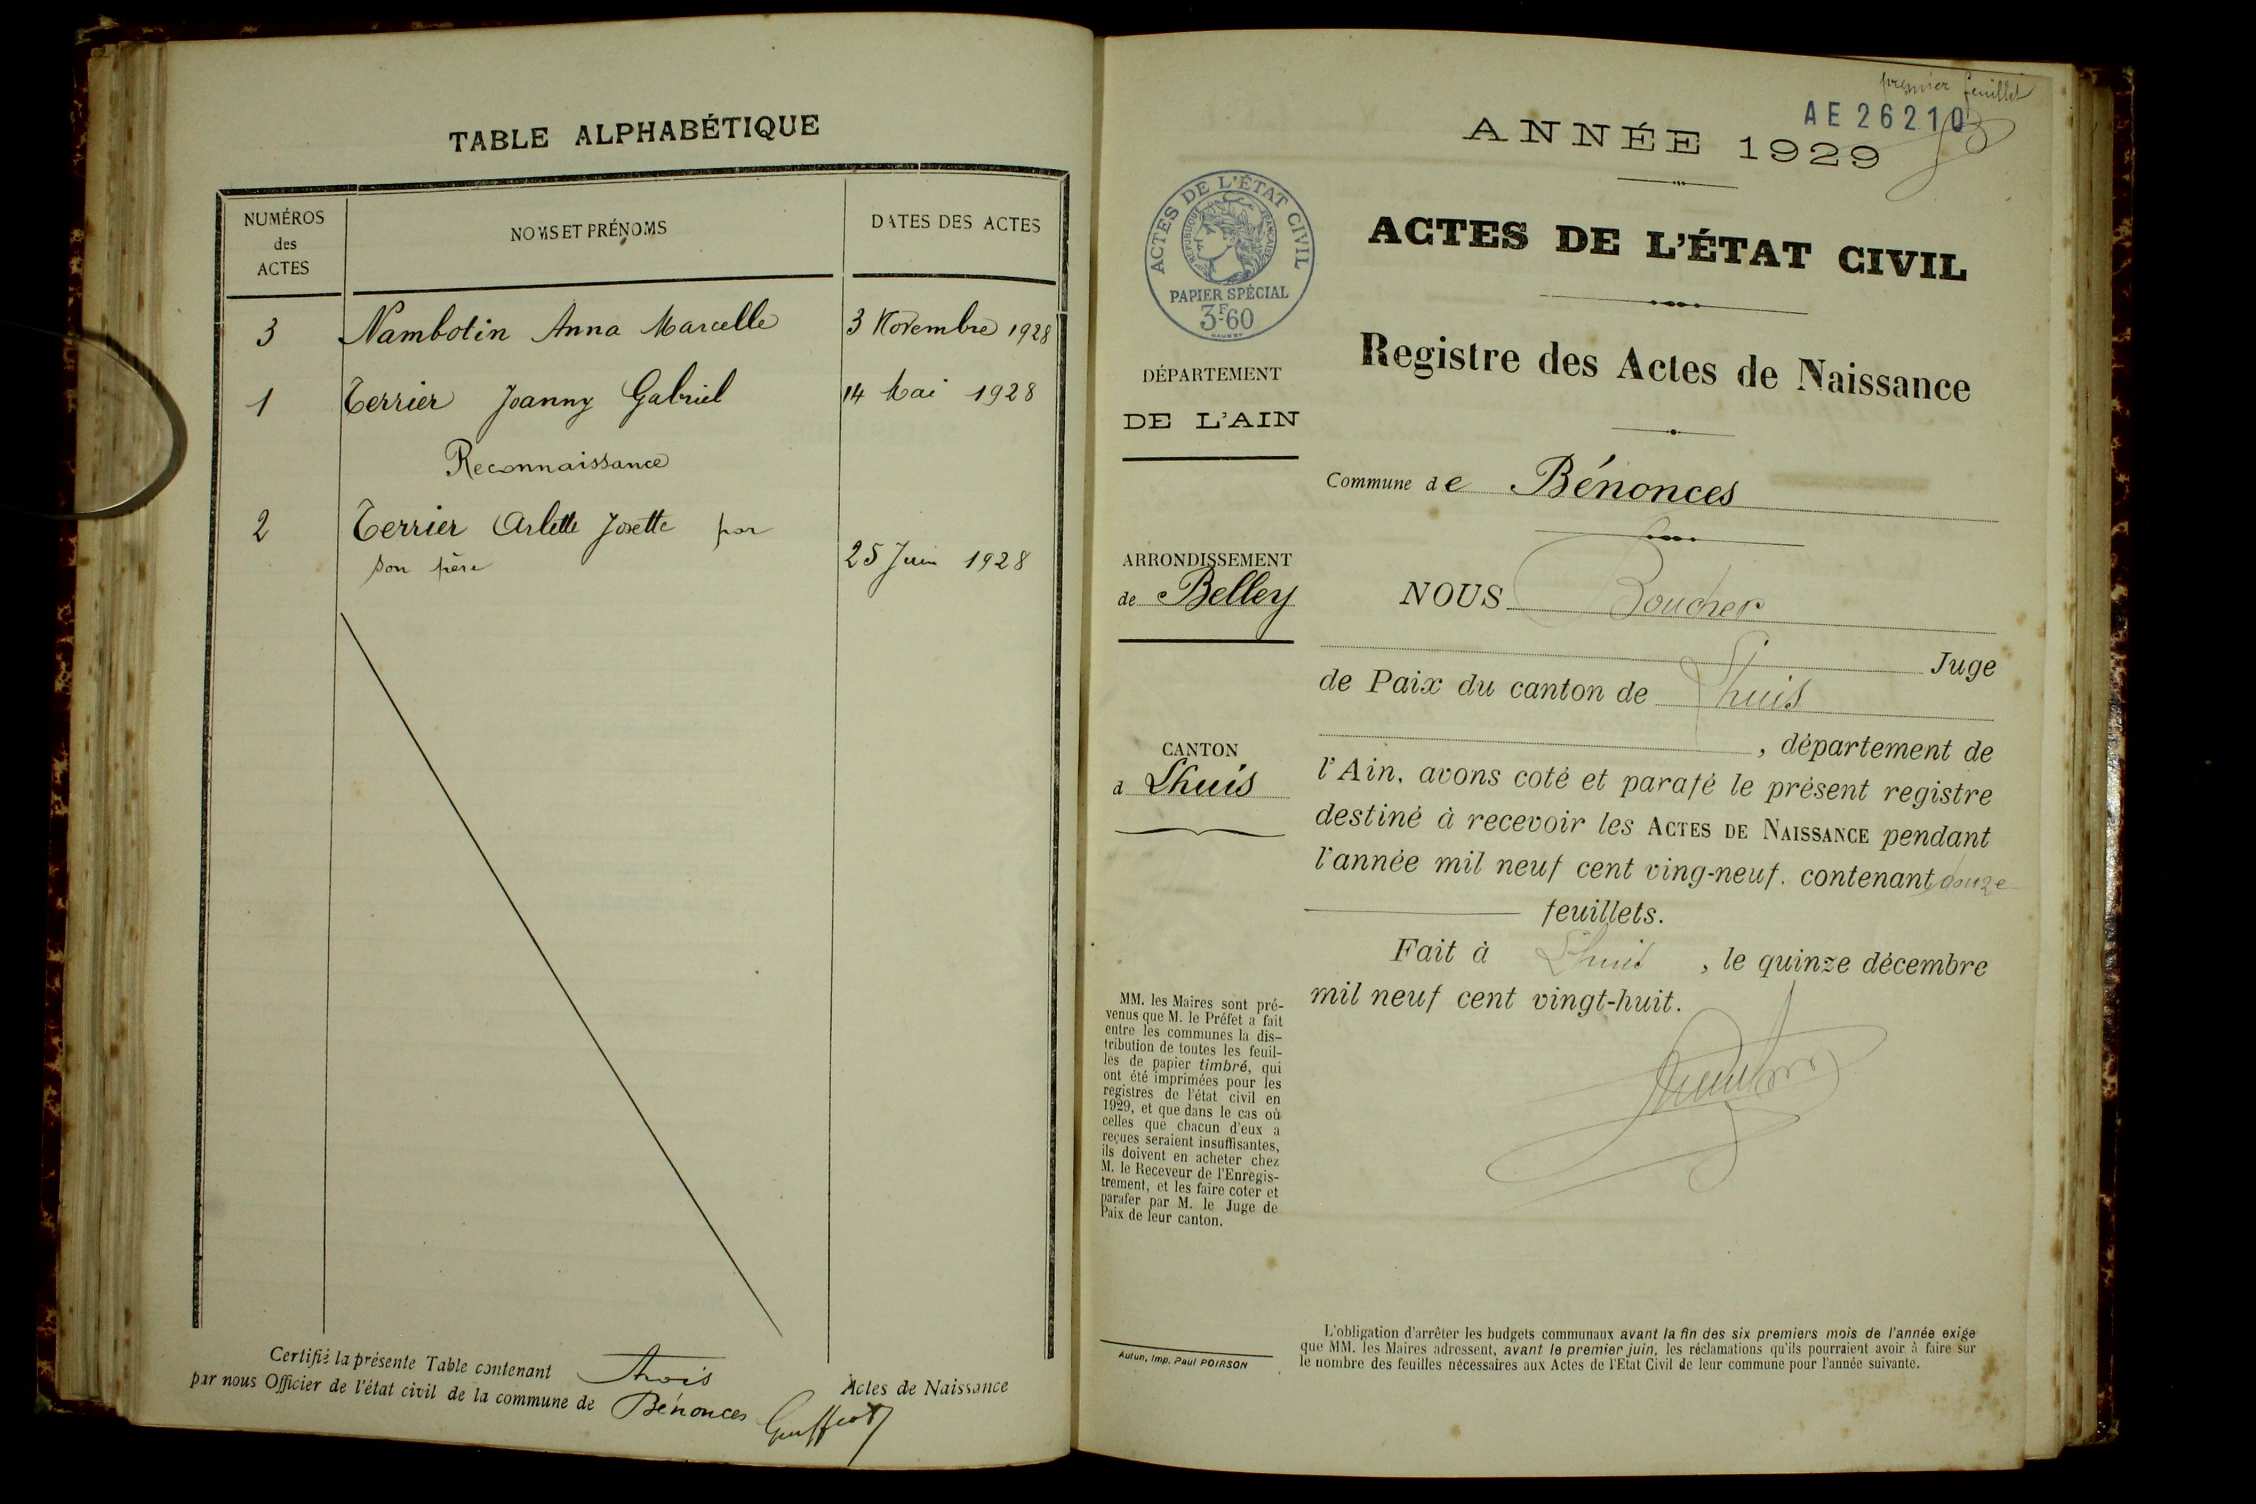 TABLE ALPHABÉTIQUE
NUMÉROS
des
ACTES
NOMS ET PRÉNOMS
DATES DES ACTES
3 Nambotin Anna Marcelle 3 Novembre 1928
1 Terrier Joanny Gabriel 14 Mai 1928
Reconnaissance
2 Terrier Arlette Josette par
son père 25 Juin 1928
Certifié la présente Table contenant trois Actes de Naissance
par nous Officier de l'état civil de la commune de Bénonces
premier feuillet
AE 26210
ANNÉE 1929
ACTES DE L'ÉTAT CIVIL
RÉPUBLIQUE FRANÇAISE
PAPIER SPÉCIAL
3F60
ACTES DE L'ÉTAT CIVIL
Registre des Actes de Naissance
DÉPARTEMENT
DE L'AIN
Commune de Bénonces
ARRONDISSEMENT
de Belley
CANTON
d Lhuis
NOUS Boucher
Juge
de Paix du canton de Lhuis
, département de
l'Ain, avons coté et parafé le présent registre
destiné à recevoir les ACTES DE NAISSANCE pendant
l'année mil neuf cent ving-neuf. contenant douze
feuillets.
Fait à Lhuis, le quinze décembre
mil neuf cent vingt-huit.
MM. les Maires sont pré-
venus que M. le Préfet a fait
entre les communes la dis-
tribution de toutes les feuil-
les de papier timbré, qui
ont été imprimées pour les
registres de l'état civil en
1929, et que dans le cas où
celles que chacun d'eux a
reçues seraient insuffisantes,
ils doivent en acheter chez
M. le Receveur de l'Enregis-
trement, et les faire coter et
parafer par M. le Juge de
Paix de leur canton.
Autun, Imp. Paul POIRSON
L'obligation d'arrêter les budgets communaux avant la fin des six premiers mois de l'année exige
que MM. les Maires adressent, avant le premier juin, les réclamations qu'ils pourraient avoir à faire sur
le nombre des feuilles nécessaires aux Actes de l'Etat Civil de leur commune pour l'année suivante.